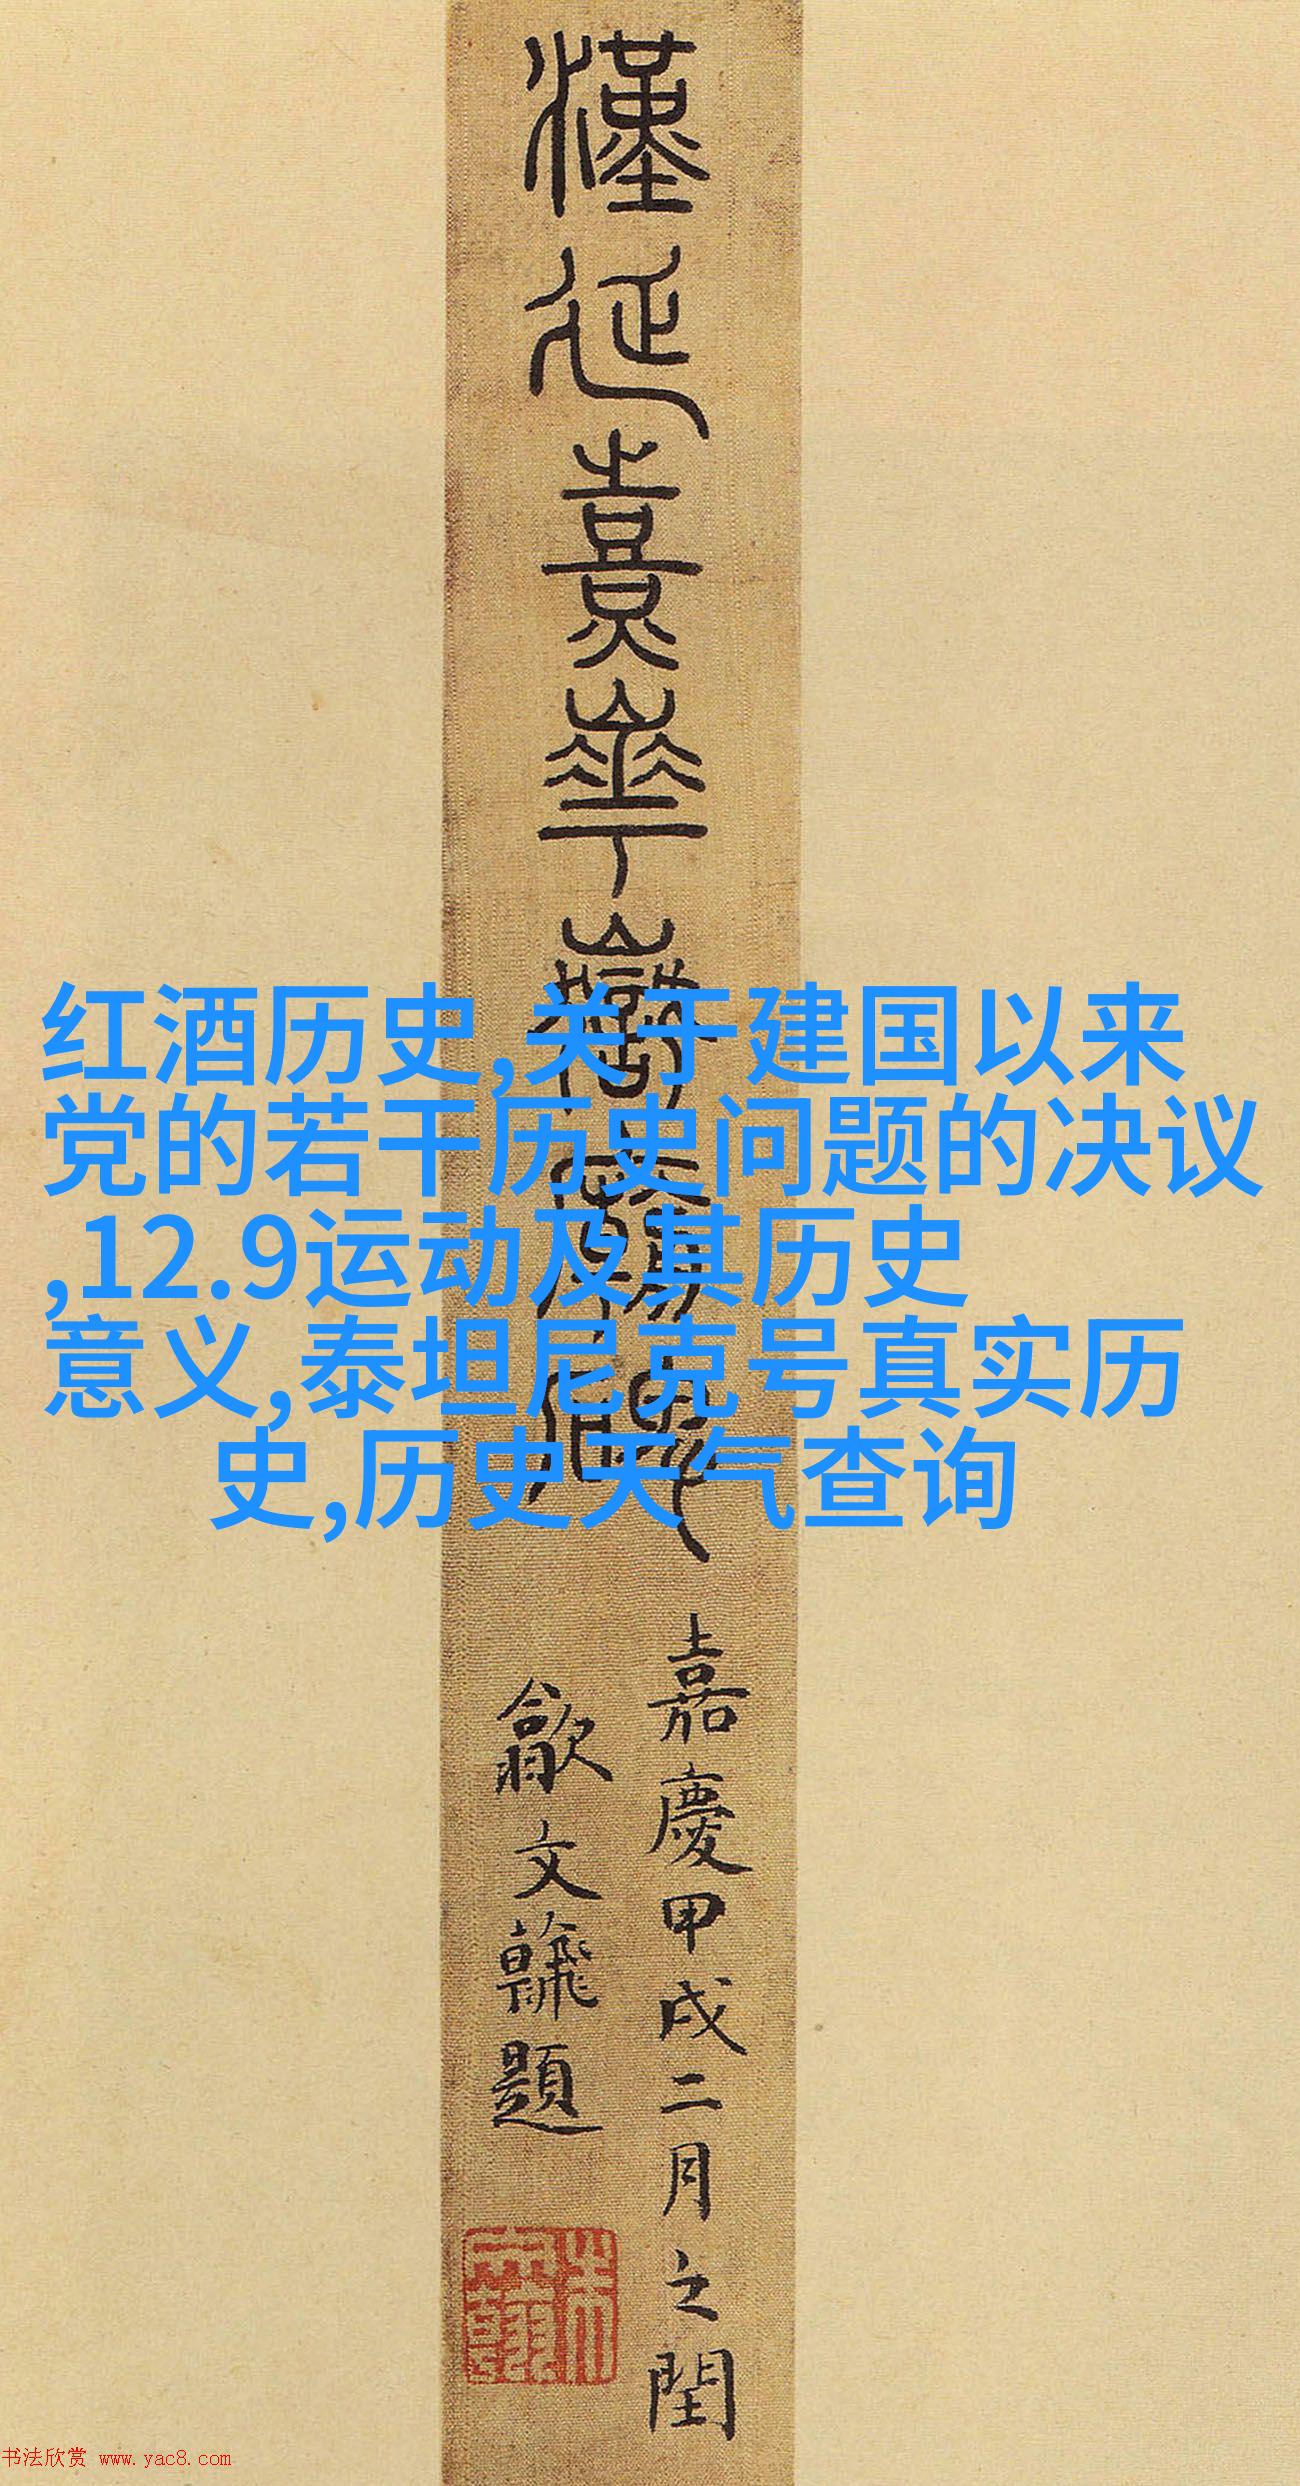 漢延熹華嶽
红酒历史,关于建国以来
党的若干历史问题的决议
,12.9运动及其历史
意义,泰坦尼克号真实历
史,历史天气查询
嘉慶甲戌二月之閏
歙文題
书法欣赏 www.yac8.com